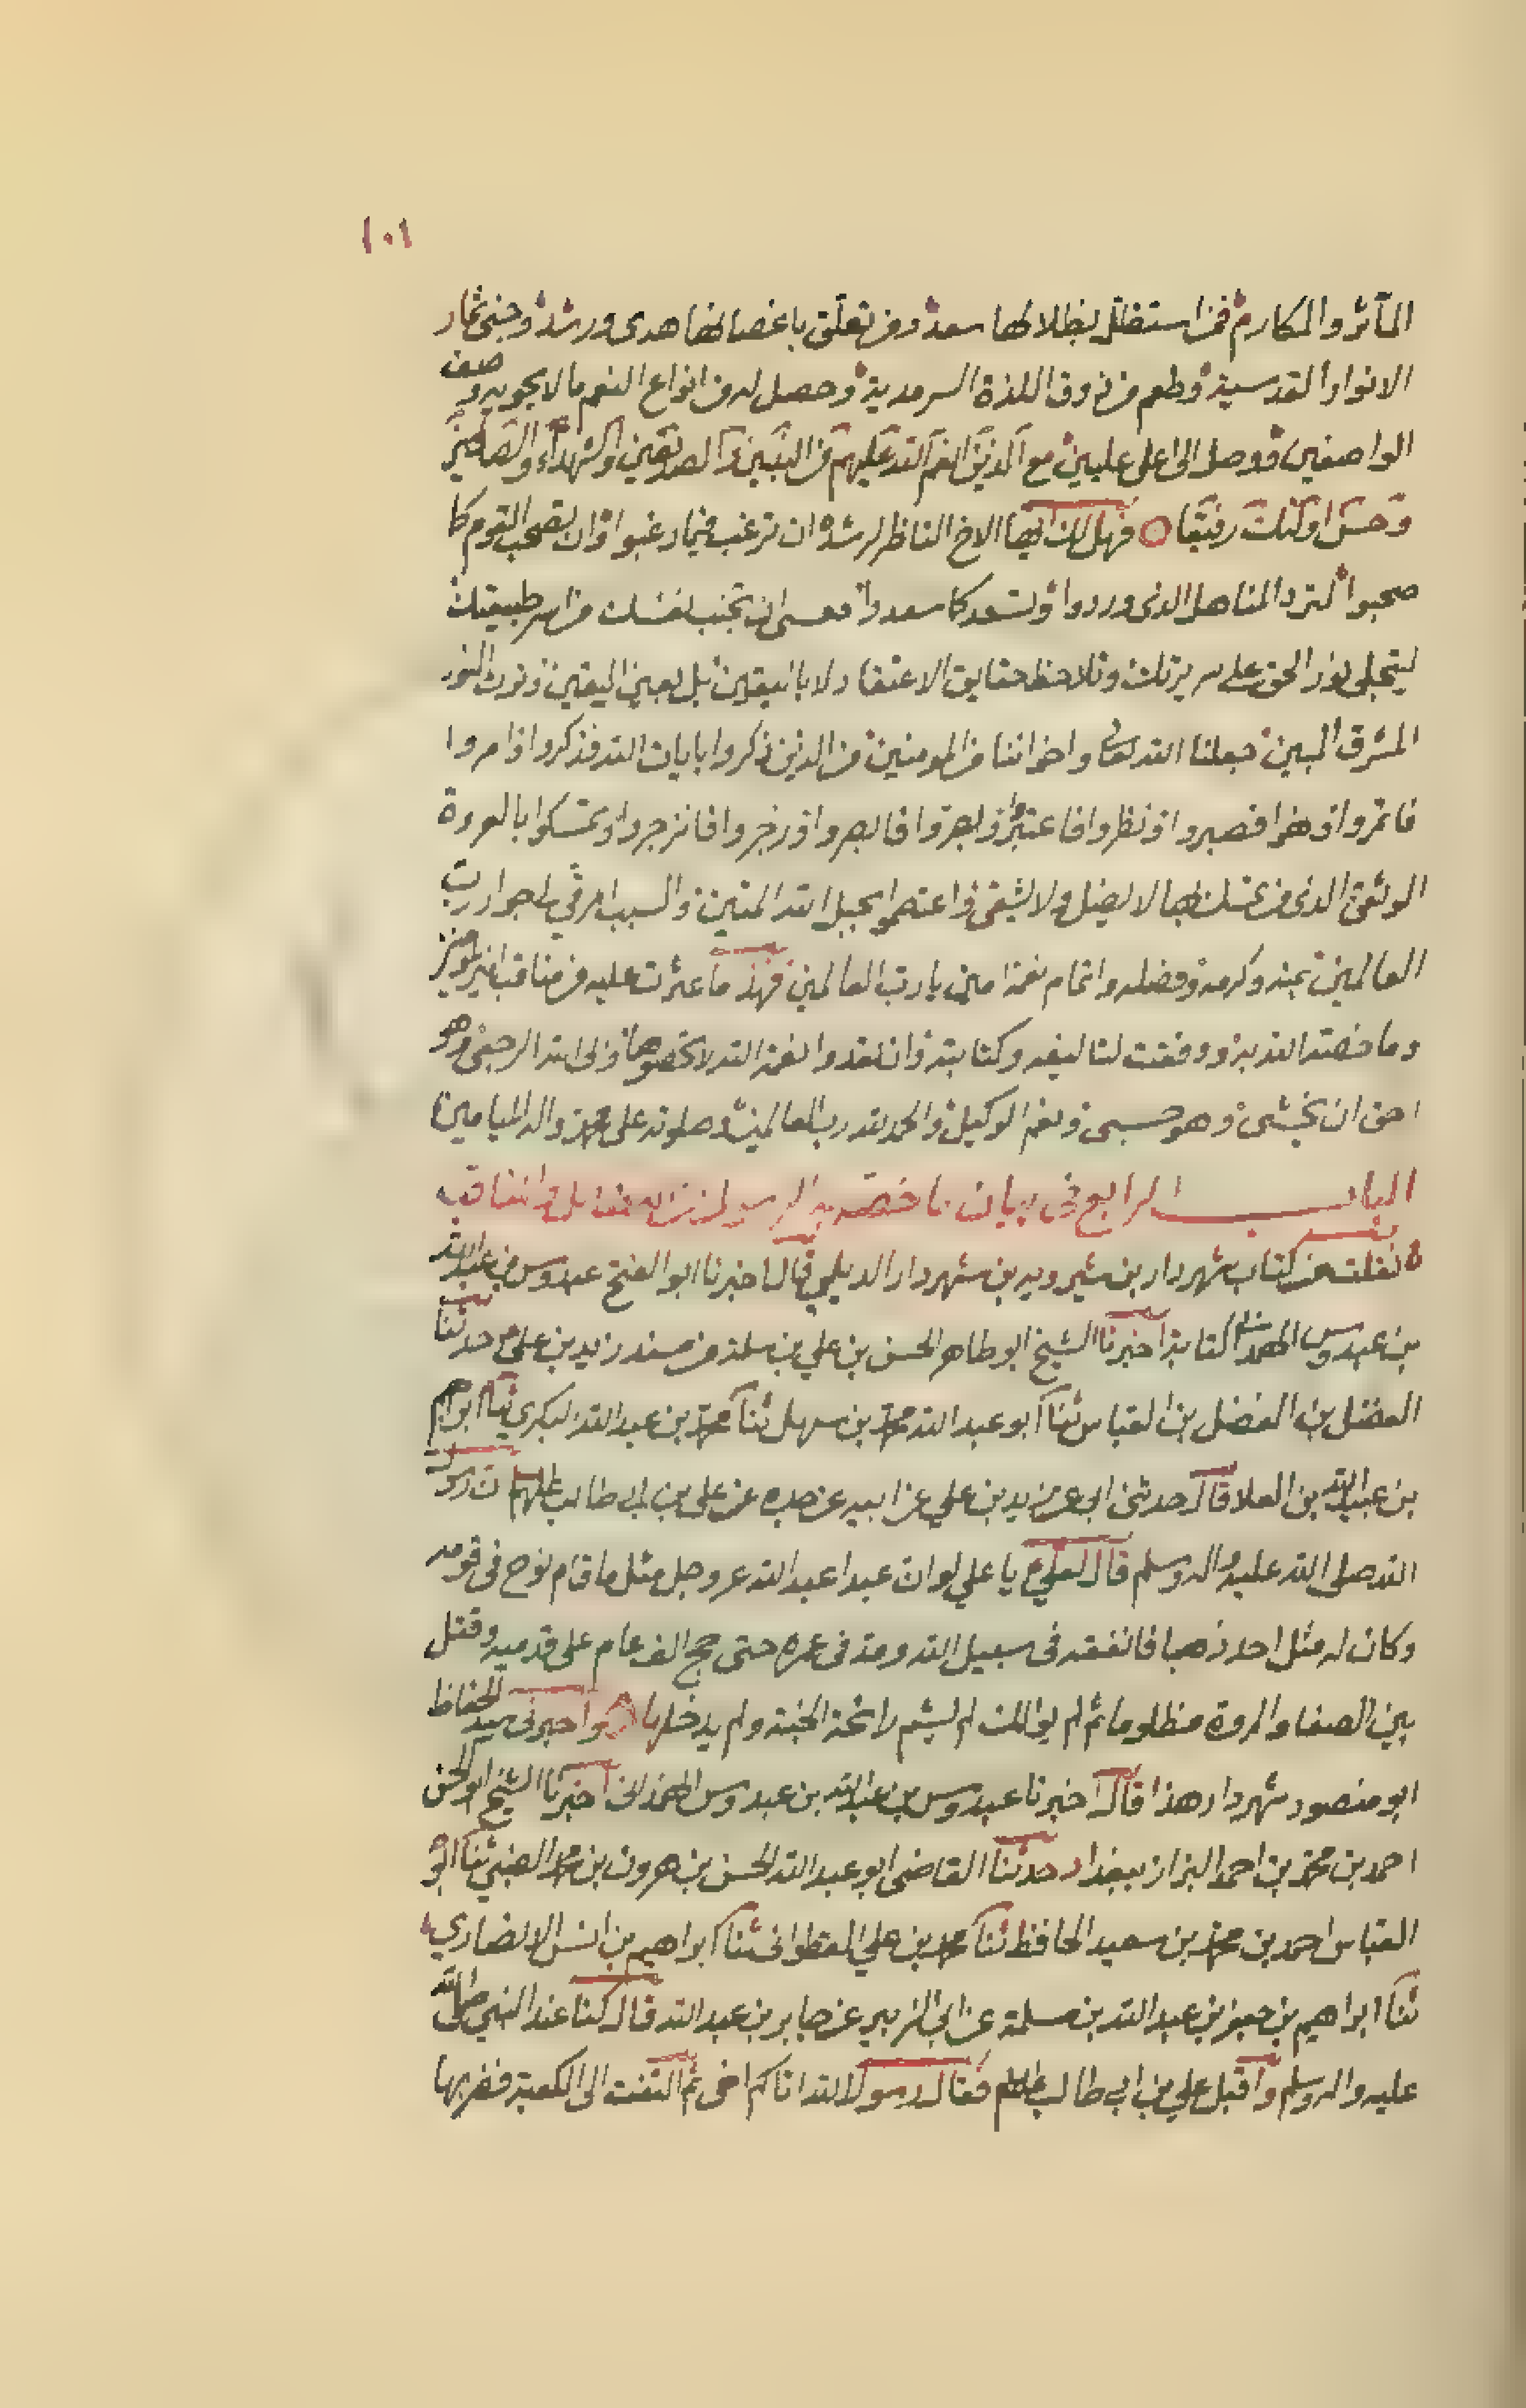 ١٠١
المآثر والمكارم فمن استظلّ بظلالها سعد ومن تعلّق باغصانها هدى ورشد وجنى ثمار
الانوار القدسية وطعم من ذوق اللذة السرمدية وحصل له من انواع النعم ما لا يحويه وصف
الواصفين ووصل الى اعلى عليين مع الذين انعم الله عليهم من النبيين والصديقين والشهداء والصالحين
وحسن اولئك رفيقا فهل لك ايها الاخ الناظر لرشده ان ترغب فيما رغبوا وان تصحب القوم كما
صحبوا لترد المناهل الذي وردوا وتسعد كما سعدوا فعسى ان تجنب نفسك من اسر طبيعتك
ليتجلى نور الحق على سريرتك وتلاحظ حقايق الاعتقاد لا باليقين بل بعين اليقين ونورك النور
المشرق المبين جعلنا الله تعالى واخواننا من المومنين من الذين ذكروا بايات الله فذكروا واذا مروا
فاتمروا ونظروا فاعتبروا وبصروا فابصروا وزجروا فانزجروا وتمسكوا بالعروة
الوثقى الذي من تمسك بها لا يضل ولا يشقى واعتصموا بحبل الله المتين والسبب المرقي الى جوار رب
العالمين بمنه وكرمه وفضله واتمام نعمه امين يا رب العالمين فهذا ما عثرت عليه من مناقب امير المومنين
وما خصته الله به ووفقت لتاليفه وكتابته وان تعدوا نعمة الله لا تحصوها والى الله الرجعى وهو
احق ان يخشى وهو حسبي ونعم الوكيل والحمد لله رب العالمين وصلوته على محمد واله الميامين
الباب الرابع في بيان ما خصته به الرسول من الفضايل والمناقب
نقلت من كتاب شهردار بن شيرويه بن شهردار الديلمي قال اخبرنا ابو الفتح عبدوس بن عبد الله
بن عبدوس الهمداني كتابة اخبرنا الشيخ ابو طاهر الحسن بن علي بن سلمة من مسند زيد بن علي حدثنا
الفضل بن الفضل بن العباس ثنا ابو عبد الله محمد بن سهل ثنا محمد بن عبد الله البكري ثنا ابراهيم
بن عبيد الله بن العلا قال حدثني ابي عن زيد بن علي عن ابيه عن جده عن علي بن ابي طالب عليهم السلام ان رسول
الله صلى الله عليه واله وسلم قال لعلي يا علي لو ان عبدا عبد الله عز وجل مثل ما قام نوح في قومه
وكان له مثل احد ذهبا فانفقه في سبيل الله ومد في عمره حتى حج الف عام على قدميه وقتل
بين الصفا والمروة مظلوما ثم لم يوالك لم يشم رائحة الجنة ولم يدخلها واخبرني سيد الحفاظ
ابو منصور شهردار هذا قال اخبرنا عبدوس بن عبد الله بن عبدوس الهمداني اخبرنا الشيخ ابو الحسن
احمد بن محمد بن احمد البزاز ببغداد حدثنا القاضي ابو عبد الله الحسن بن هرون بن محمد الضبي ثنا ابو
العباس احمد بن محمد بن سعيد الحافظ ثنا محمد بن علي القطواني ثنا ابراهيم بن انس الانصاري
ثنا ابراهيم بن جعفر بن عبد الله بن مسلمة عن ابي الزبير عن جابر بن عبد الله قال كنا عند النبي صلى الله
عليه واله وسلم واقبل علي بن ابي طالب عليه السلام فقال رسول الله اتاكم اخي ثم التفت الى الكعبة فضربها